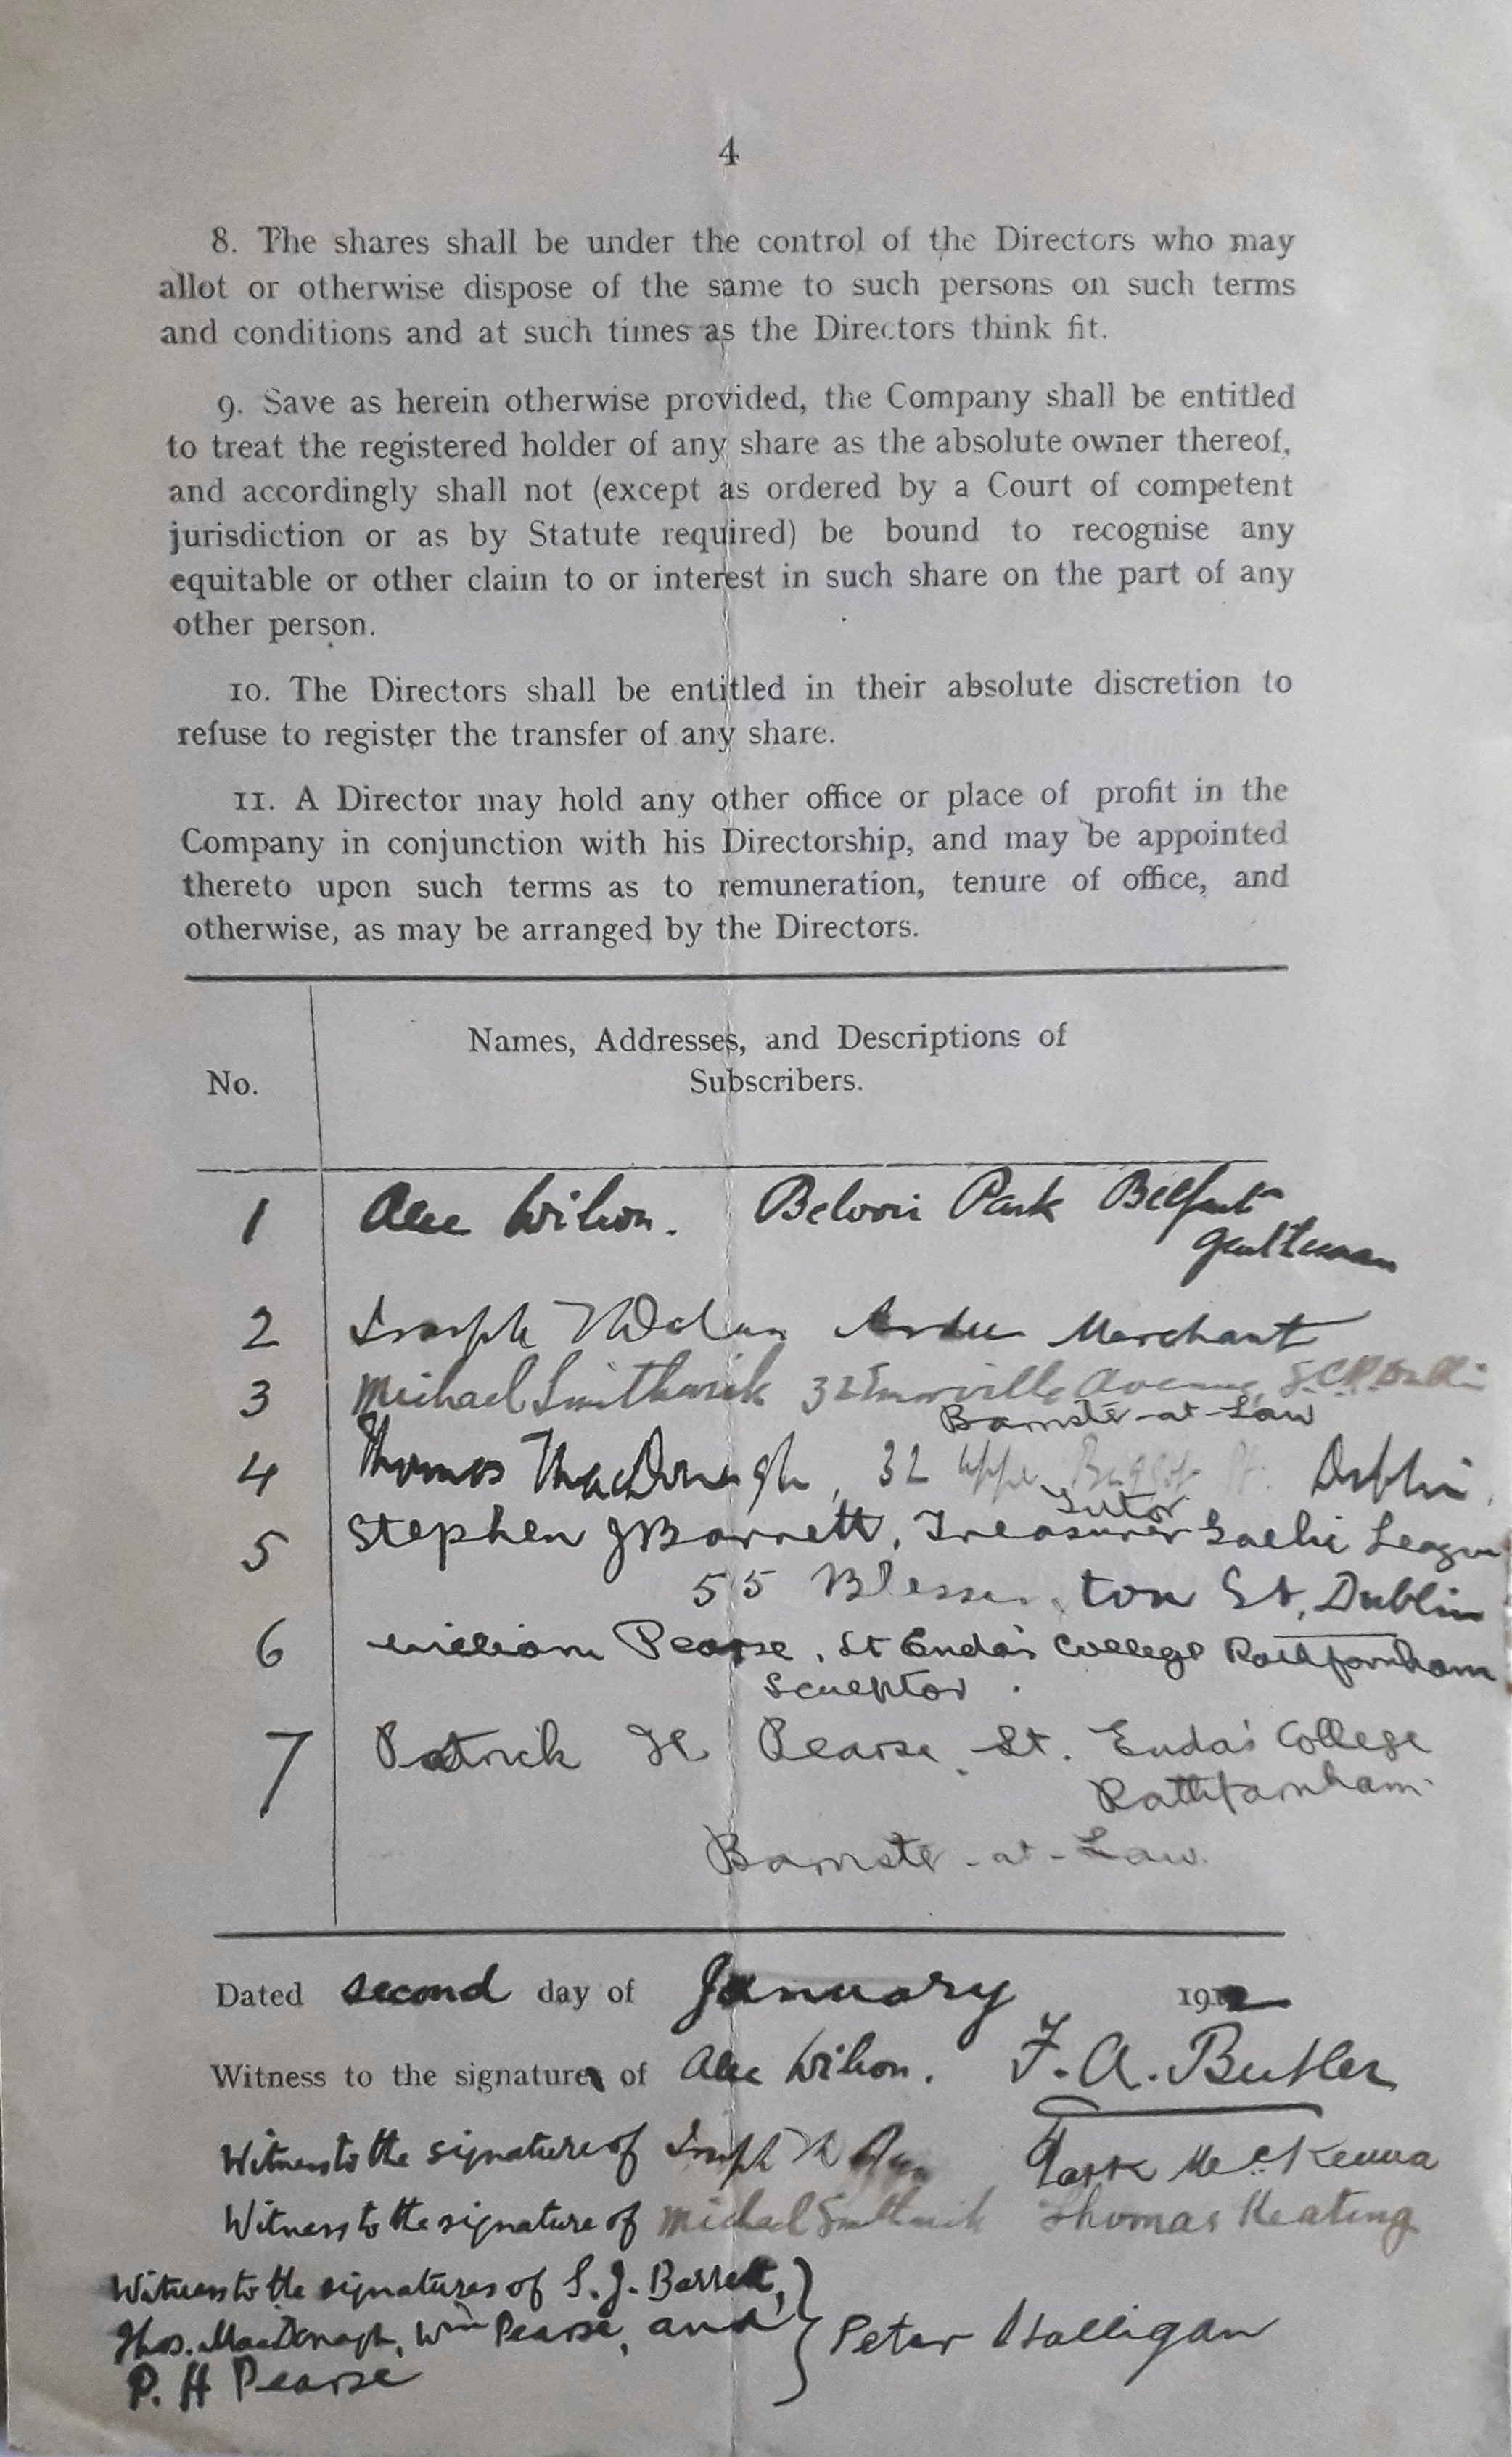 4
8. The shares shall be under the control of the Directors who may
allot or otherwise dispose of the same to such persons on such terms
and conditions and at such times as the Directors think fit.
9. Save as herein otherwise provided, the Company shall be entitled
to treat the registered holder of any share as the absolute owner thereof,
and accordingly shall not (except as ordered by a Court of competent
jurisdiction or as by Statute required) be bound to recognise any
equitable or other claim to or interest in such share on the part of any
other person.
10. The Directors shall be entitled in their absolute discretion to
refuse to register the transfer of any share.
11. A Director may hold any other office or place of profit in the
Company in conjunction with his Directorship, and may be appointed
thereto upon such terms as to remuneration, tenure of office, and
otherwise, as may be arranged by the Directors.
No.
Names, Addresses, and Descriptions of
Subscribers.
1 Alec Wilson. Belvoir Park Belfast
gentleman
2 Joseph Dolan Ardee Merchant
3 Michael Smithwick 32 Emorville Avenue, S.C.R. Dublin
Barrister-at-Law
4 Thomas MacDonagh, 32 Upper Baggot St. Dublin.
Tutor
5 Stephen J Barrett, Treasurer Gaelic League
55 Blessington St, Dublin
6 William Pearse, St Enda's College Rathfarnham
Sculptor.
7 Patrick H Pearse, St. Enda's College
Rathfarnham
Barrister-at-Law.
Dated second day of January 1912
Witness to the signature of Alec Wilson. F. A. Butler
Witness to the signature of Joseph McKenna
Witness to the signature of Michael Smithwick Thomas Keating
Witness to the signatures of S. J. Barrett,
Thos. MacDonagh, Wm Pearse, and } Peter Halligan
P. H Pearse